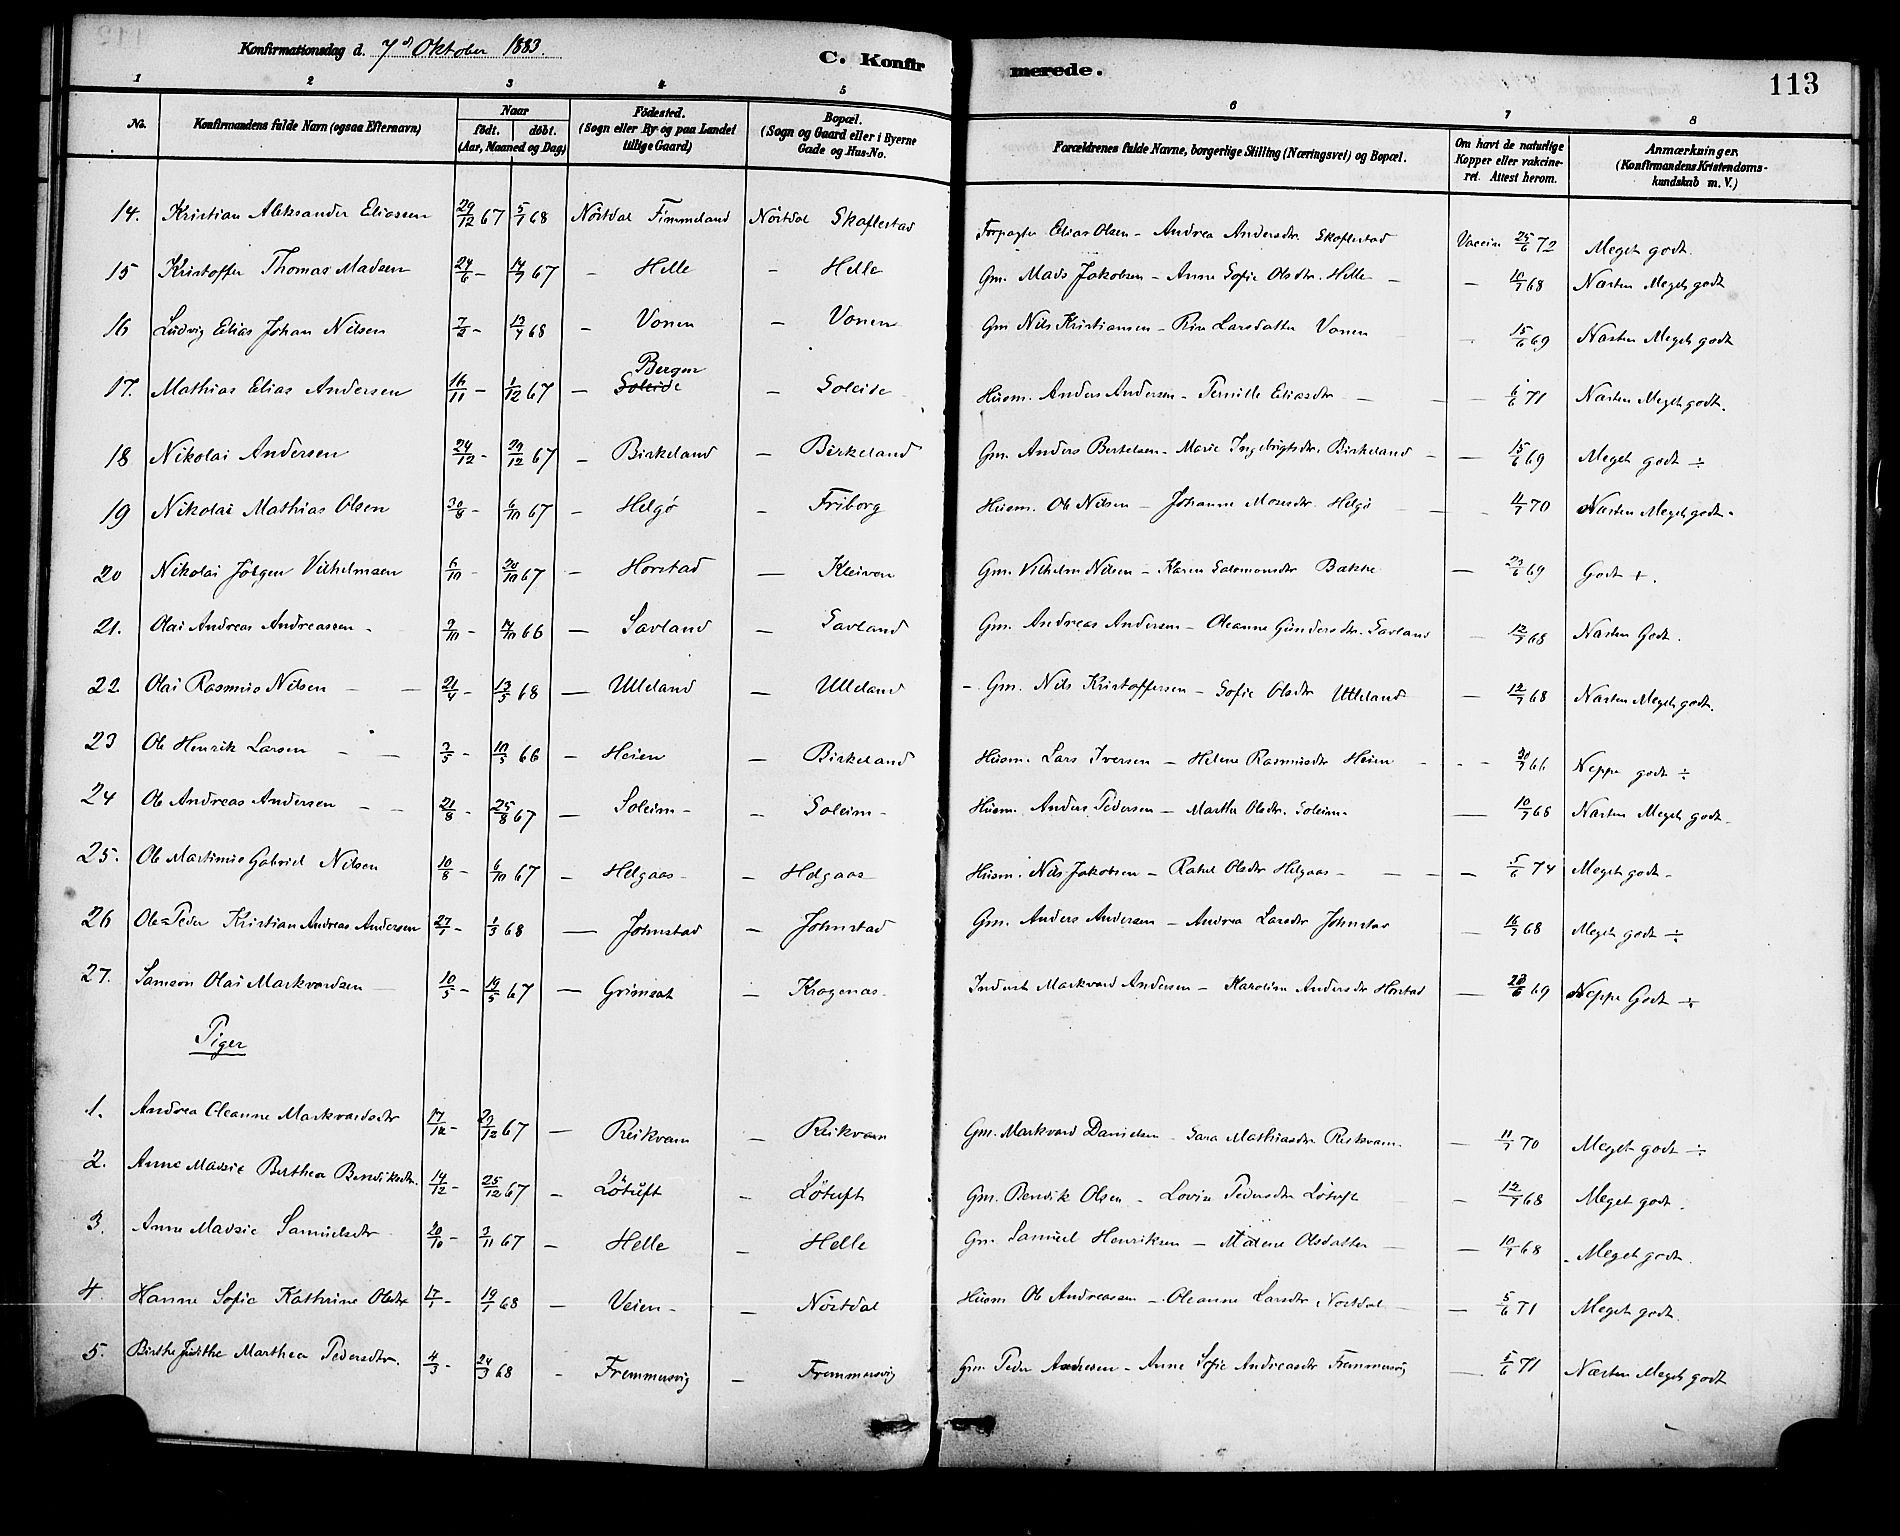 Konfirmationsdag d. 7d Oktober 1883.
C. Konfirmerede.
113
1 2 3 4 5 6 7 8
No.
Konfirmandens fulde Navn (ogsaa Efternavn)
Naar
født. døbt.
(Aar, Maaned og Dag)
Födested.
(Sogn eller By og paa Landet
tillige Gaard)
Bopæl.
(Sogn og Gaard eller i Byerne
Gade og Hus-No.
Forældrenes fulde Navne, borgerlige Stilling (Næringsvei) og Bopæl.
Om havt de naturlige
Kopper eller vakcine-
ret. Attest herom.
Anmærkninger.
(Konfirmandens Kristendoms-
kundskab m. V.)
14. Kristian Aleksander Eliasen 29/12 67 5/1 68 Nöstdal Fimmeland Nöstdal Skaflestad Forpagter Elias Olsen - Andrea Andersdtr. Skaflestad Vaccin 25/6 72 Meget godt.
15 Kristoffer Thomas Madsen 24/6 - 14/7 67 - Helle - Helle Gm. Mads Jakobsen - Anne Sofie Olsdtr. Helle - - 10/7 68 Næsten Meget godt
16 Ludvig Elias Johan Nilsen 7/2 - 13/4 68 - Vonen - Vonen Gm Nils Kristiansen - Larsdatter Vonen - 15/6 69 Næsten Meget godt
17. Mathias Elias Andersen 16/11 - 1/12 67 - Bergen Soleide - Soleide Husm. Anders Andersen - Pernille Eliasdtr - - - 6/6 71 Næsten Meget godt.
18 Nikolai Andersen 24/12 - 29/12 67 - Birkeland - Birkeland Gm. Anders Bertelsen - Marie Ingebrigtsdtr. Birkeland - - 15/6 69 Meget godt ÷
19 Nikolai Mathias Olsen 30/8 - 6/10 67 - Helgö - Friborg Husm. Ole Nilsen - Johanne Mosesdtr. Helgö - - 4/7 70 Næsten Meget godt -
20 Nikolai Jörgen Vilhelmsen 6/10 - 20/10 67 - Horstad - Kleiven Gm. Vilhelm Nilsen - Karen Salomonsdtr Bakke - 23/6 69 Godt +.
21. Olai Andreas Andreassen - 9/10 - 14/10 66 - Savland - Savland Gm. Andreas Andersen - Oleanne Gundersdtr. Savland - 12/7 68 Næsten Godt.
22 Olai Rasmus Nilsen - - 21/4 - 13/5 68 - Ulleland - Ulleland - Gm. Nils Kristoffersen - Sofie Olsdtr Ulleland - 12/7 68 Næsten Meget godt.
23 Ole Henrik Larsen - - 3/5 - 10/5 66 - Heien - Birkeland Husm. Lars Iversen - Helene Rasmusdtr Heien - - - 66 Neppe godt ÷
24 Ole Andreas Andersen - - 21/8 - 25/8 67 - Soleim - - Soleim - Husm. Anders Pedersen - Marthe Olsdtr. Soleim - - 10/7 68 Næsten Meget godt -
25. Ole Martinus Gabriel Nilsen 10/8 - 6/10 67 - Helgaas - - Helgaas Husm. Nils Jakobsen - Rakel Olsdtr Helgaas - - - - 5/6 74 Meget godt -
26 Ole Peder Kristian Andreas Andersen 27/1 - 1/3 68 - Johnstad - Johnstad Gm. Anders Andersen - Andrea Larsdtr Johnstad - 16/7 68 Meget godt ÷
27. Samson Olai Markvardsen - 10/5 - 19/5 67 - Grimset - Kragenas - Inderst Markvard Andersen - Karoline Andersdtr Horstad - 69 Neppe Godt ÷
Piger
1. Andrea Oleanne Markvardsdtr 17/12 - 29/12 67 - Reikvam - Reikvam Gm. Markvard Danielsen - Sara Mathiasdtr Reikvam. - 11/7 70 Meget godt ÷
2. Anne Madsie Berthea Bendiksdtr. 14/12 - 25/12 67 - Lötuft - Lötuft Gm. Bendik Olsen - Lovise Pedersdtr Lötuft - 12/7 68 Meget godt.
3. Anne Madsie Samuelsdtr 20/10 - 3/11 67 - Helle - Helle Gm. Samuel Henriksen - Malene Olsdatter - - 10/7 68 - Meget godt.
4. Hanne Sofie Kathrine Olsdtr 17/1 - 19/1 68 - Veien - - Nöstdal Husm Ole Andreassen - Oleanne Larsdtr, Nöstdal - - 5/6 71 Meget godt.
5. Birthe Judithe Marthea Pedersdtr. 4/3 - 24/3 68 - Fremmersvig - Fremmersvig Gm. Peder Andresen - Anne Sofie Andreasdtr Fremmersvig - 5/6 71 Næsten Meget godt